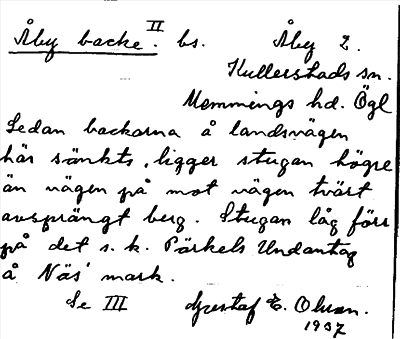 Åby backe. II bs. Åby 2.
Kullerstads sn.
Memmings hd. Ögl
Sedan backarna å landsvägen
här sänkts, ligger stugan högre
än vägen på mot vägen tvärt
avsprängt berg. Stugan låg förr
på det s. k. Pärkels Undantag
å Näs' mark.
Se III Gustaf E. Olsson.
1937